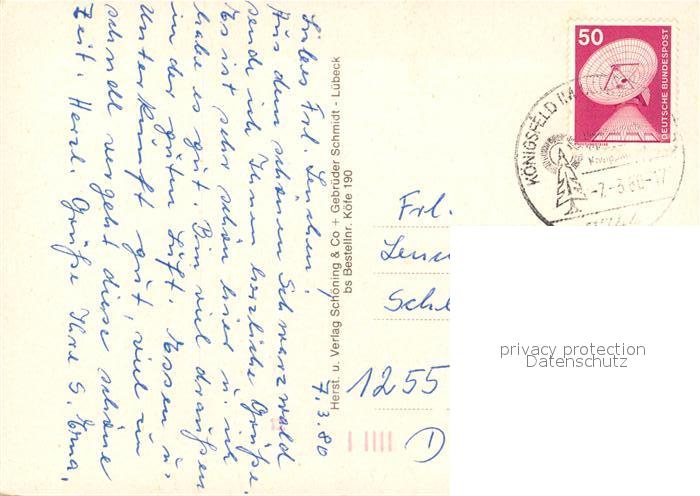 7.3.80
Liebes Frl. Lenchen!
Aus dem schönen Schwarzwald
sende ich Ihnen herzliche Grüße.
Es ist sehr schön hier u. ich
habe es gut. Bin viel draußen
in der guten Luft. Essen u.
Unterkunft gut, viel zu
schnell vergeht diese schöne
Zeit. Herzl. Grüße Ihre S. Erna.
Herst. u. Verlag Schöning & Co + Gebrüder Schmidt - Lübeck
bs Bestellnr. Köfe 190
50
DEUTSCHE BUNDESPOST
KÖNIGSFELD
-7.-3.80-17
Frl.
1255
D
privacy protection
Datenschutz